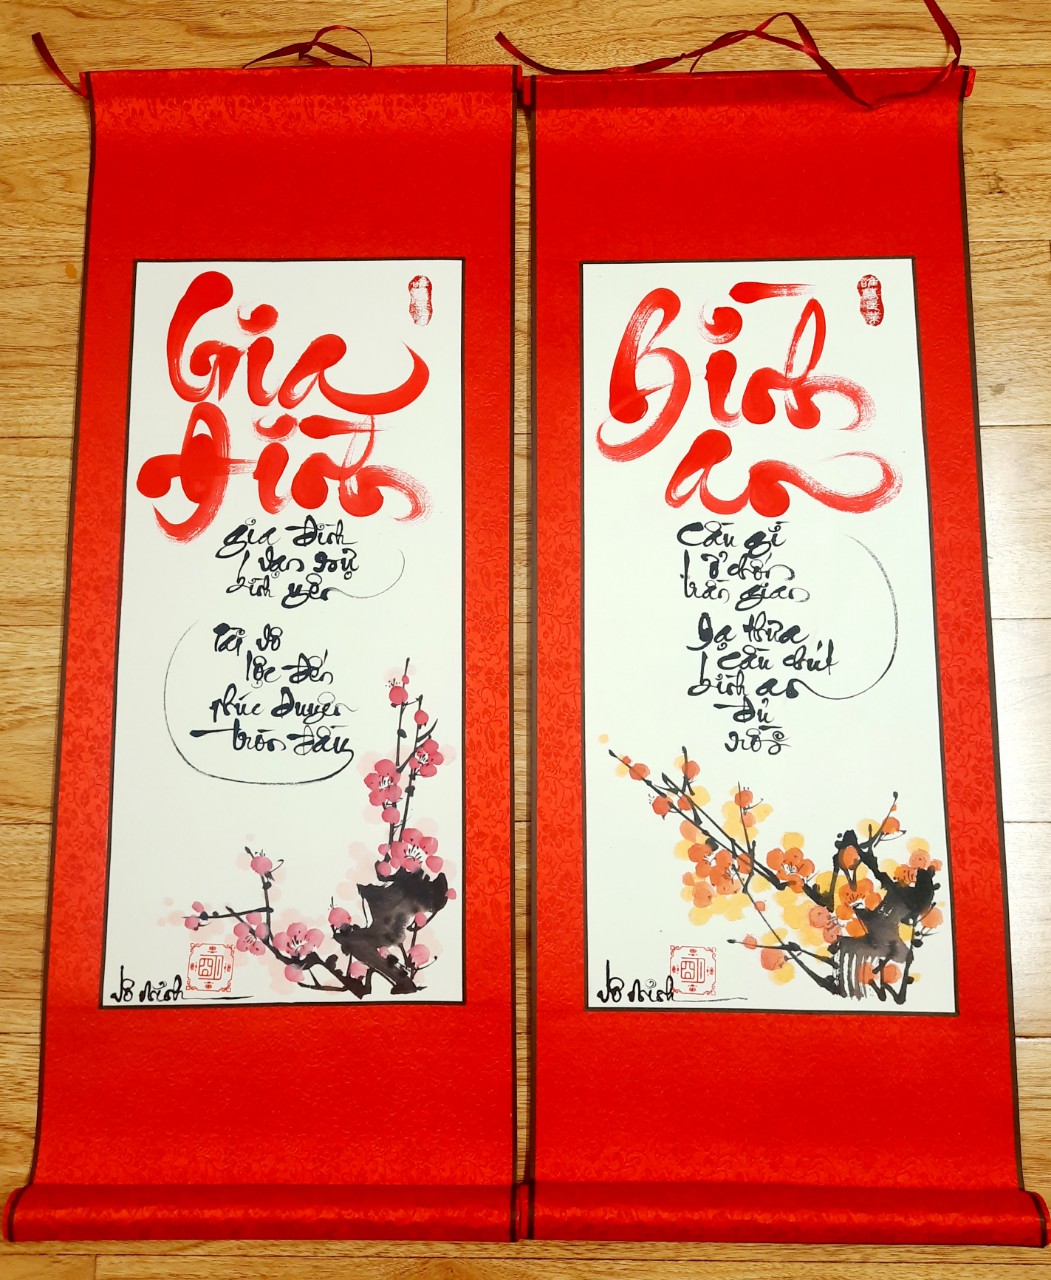 Gia
Đình
gia đình
vạn sự
bình yên
Tài vô
lộc đến
phúc duyên
tròn đầy
Bình
an
Cần gì
ở chốn
trần gian
Dạ thưa
cần chút
bình an
đủ
rồi